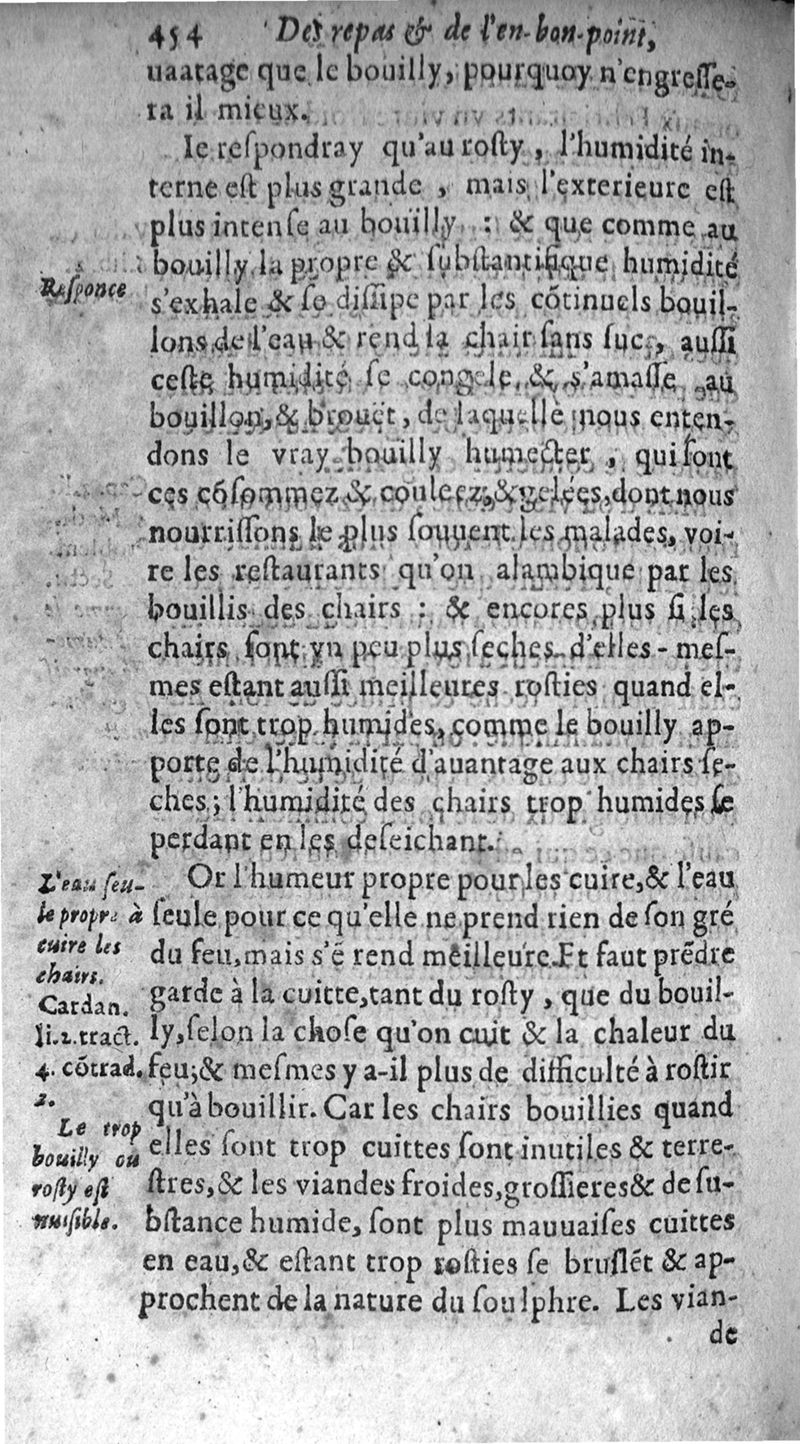 454 Des repas & de l'en-bon-point,
uaatage que le bouilly, pourquoy n'engreſſe-
ra il mieux.
Ie reſpondray qu'au roſty, l'humidité in-
terne eſt plus grande, mais l'exterieure eſt
plus intenſe au bouïlly : & que comme au
bouilly la propre & ſubſtantifique humidité
Reſponce
s'exhale & ſe diſſipe par les cõtinuels bouil-
lons de l'eau & rend la chair ſans ſuc, auſſi
ceſte humidité ſe congele, & s'amaſſe au
bouillon, & brouët, de laquelle nous enten-
dons le vray bouilly humecter, qui ſont
ces cõſommez & couleez, & gelées, dont nous
nourriſſons le plus ſouuent les malades, voi-
re les reſtaurants qu'on alambique par les
bouillis des chairs : & encores plus ſi les
chairs ſont vn peu plus ſeches d'elles-meſ-
mes eſtant auſſi meilleures roſties quand el-
les ſont trop humides, comme le bouilly ap-
porte de l'humidité d'auantage aux chairs ſe-
ches; l'humidité des chairs trop humides ſe
perdant en les deſeichant.
Or l'humeur propre pour les cuire, & l'eau
ſeule pour ce qu'elle ne prend rien de ſon gré
du feu, mais s'ẽ rend meilleure. Et faut prẽdre
garde à la cuitte, tant du roſty, que du bouil-
ly, ſelon la choſe qu'on cuit & la chaleur du
feu; & meſmes y a-il plus de difficulté à roſtir
qu'à bouillir. Car les chairs bouillies quand
elles ſont trop cuittes ſont inutiles & terre-
ſtres, & les viandes froides, groſſieres & de ſu-
bſtance humide, ſont plus mauuaiſes cuittes
en eau, & eſtant trop roſties ſe bruſlẽt & ap-
prochent de la nature du ſoulphre. Les vian-
de
L'eau ſeu-
le propre à
cuire les
chairs.
Cardan.
li.2.tract.
4. cõtrad.
2.
Le trop
bouilly ou
roſty eſt
nuiſible.